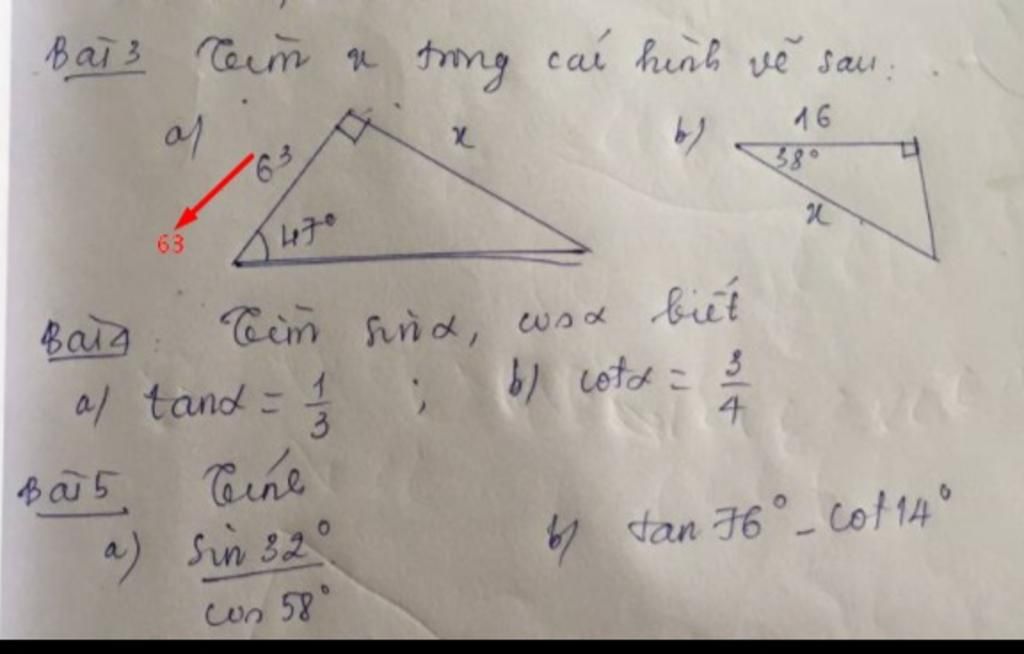 Bài 3 Tìm x trong các hình vẽ sau:
a) 63 x 47°
63
b) 16 38° x
Bài 4: Tìm sinα, cosα biết
a) tanα = 1/3 ; b) cotα = 3/4
Bài 5 Tính
a) sin 32° / cos 58° b) tan 76° - cot 14°